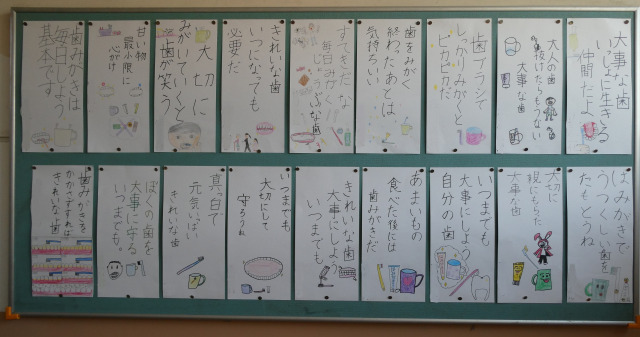 大事な歯
いっしょに生きる
仲間だよ
大人の歯
抜けたらもうない
大事な歯
歯ブラシで
しっかりみがくと
ピカピカだ
歯をみがく
終わったあとは
気持ちいい
すてきだな
毎日みがく
じょうぶな歯
きれいな歯
いつになっても
必要だ
大切に
みがいていくと
歯が笑う
甘い物
最小限に
心がけ
歯みがきは
毎日しよう
基本です
はみがきで
うつくしい歯を
たもとうね
大切に
親にもらった
大事な歯
いつまでも
大事にしよう
自分の歯
あまいもの
食べた後には
歯みがきだ
きれいな歯
大事にしよう
いつまでも
いつまでも
大切にして
守ろうね
真っ白で
元気いっぱい
きれいな歯
ぼくの歯を
大事に守る
いつまでも。
歯みがきを
かかさずすれば
きれいな歯